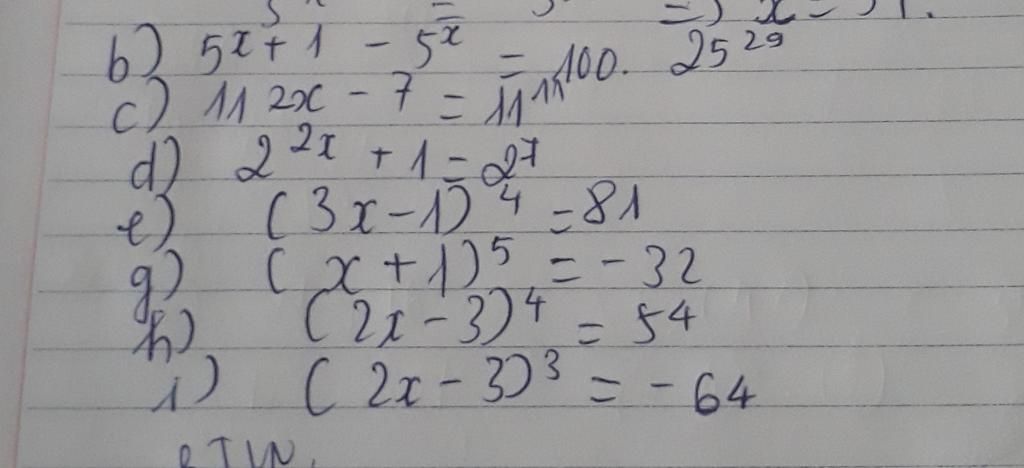 3 x = 3 => x = 31.
b) 5^x + 1 - 5^x = 100. 25^29
c) 11^2x - 7 = 11^11
d) 2^2x + 1 = 2^7
e) (3x - 1)^4 = 81
g) (x + 1)^5 = - 32
h) (2x - 3)^4 = 5^4
i) (2x - 3)^3 = - 64